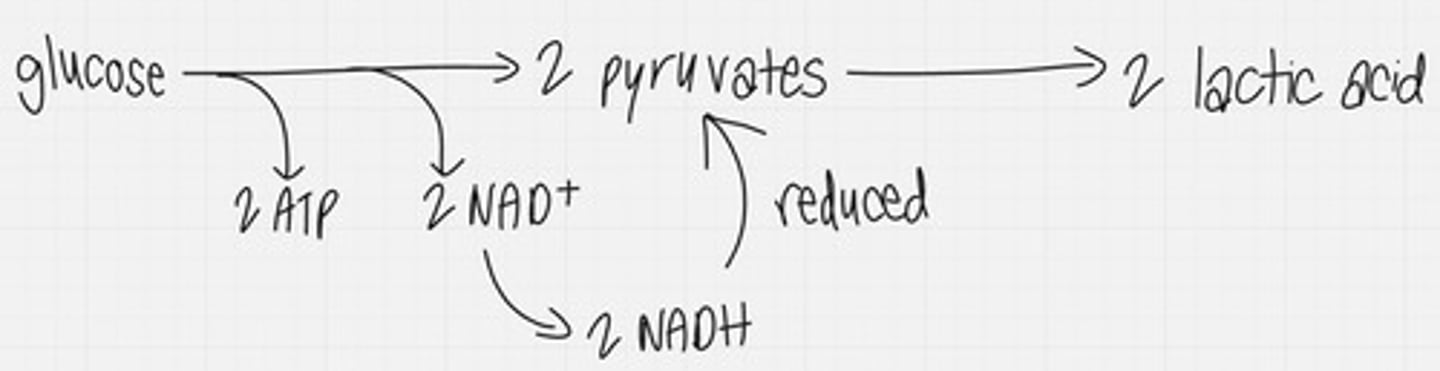 glucose → 2 pyruvates → 2 lactic acid
2 ATP 2 NAD+ reduced
2 NADH